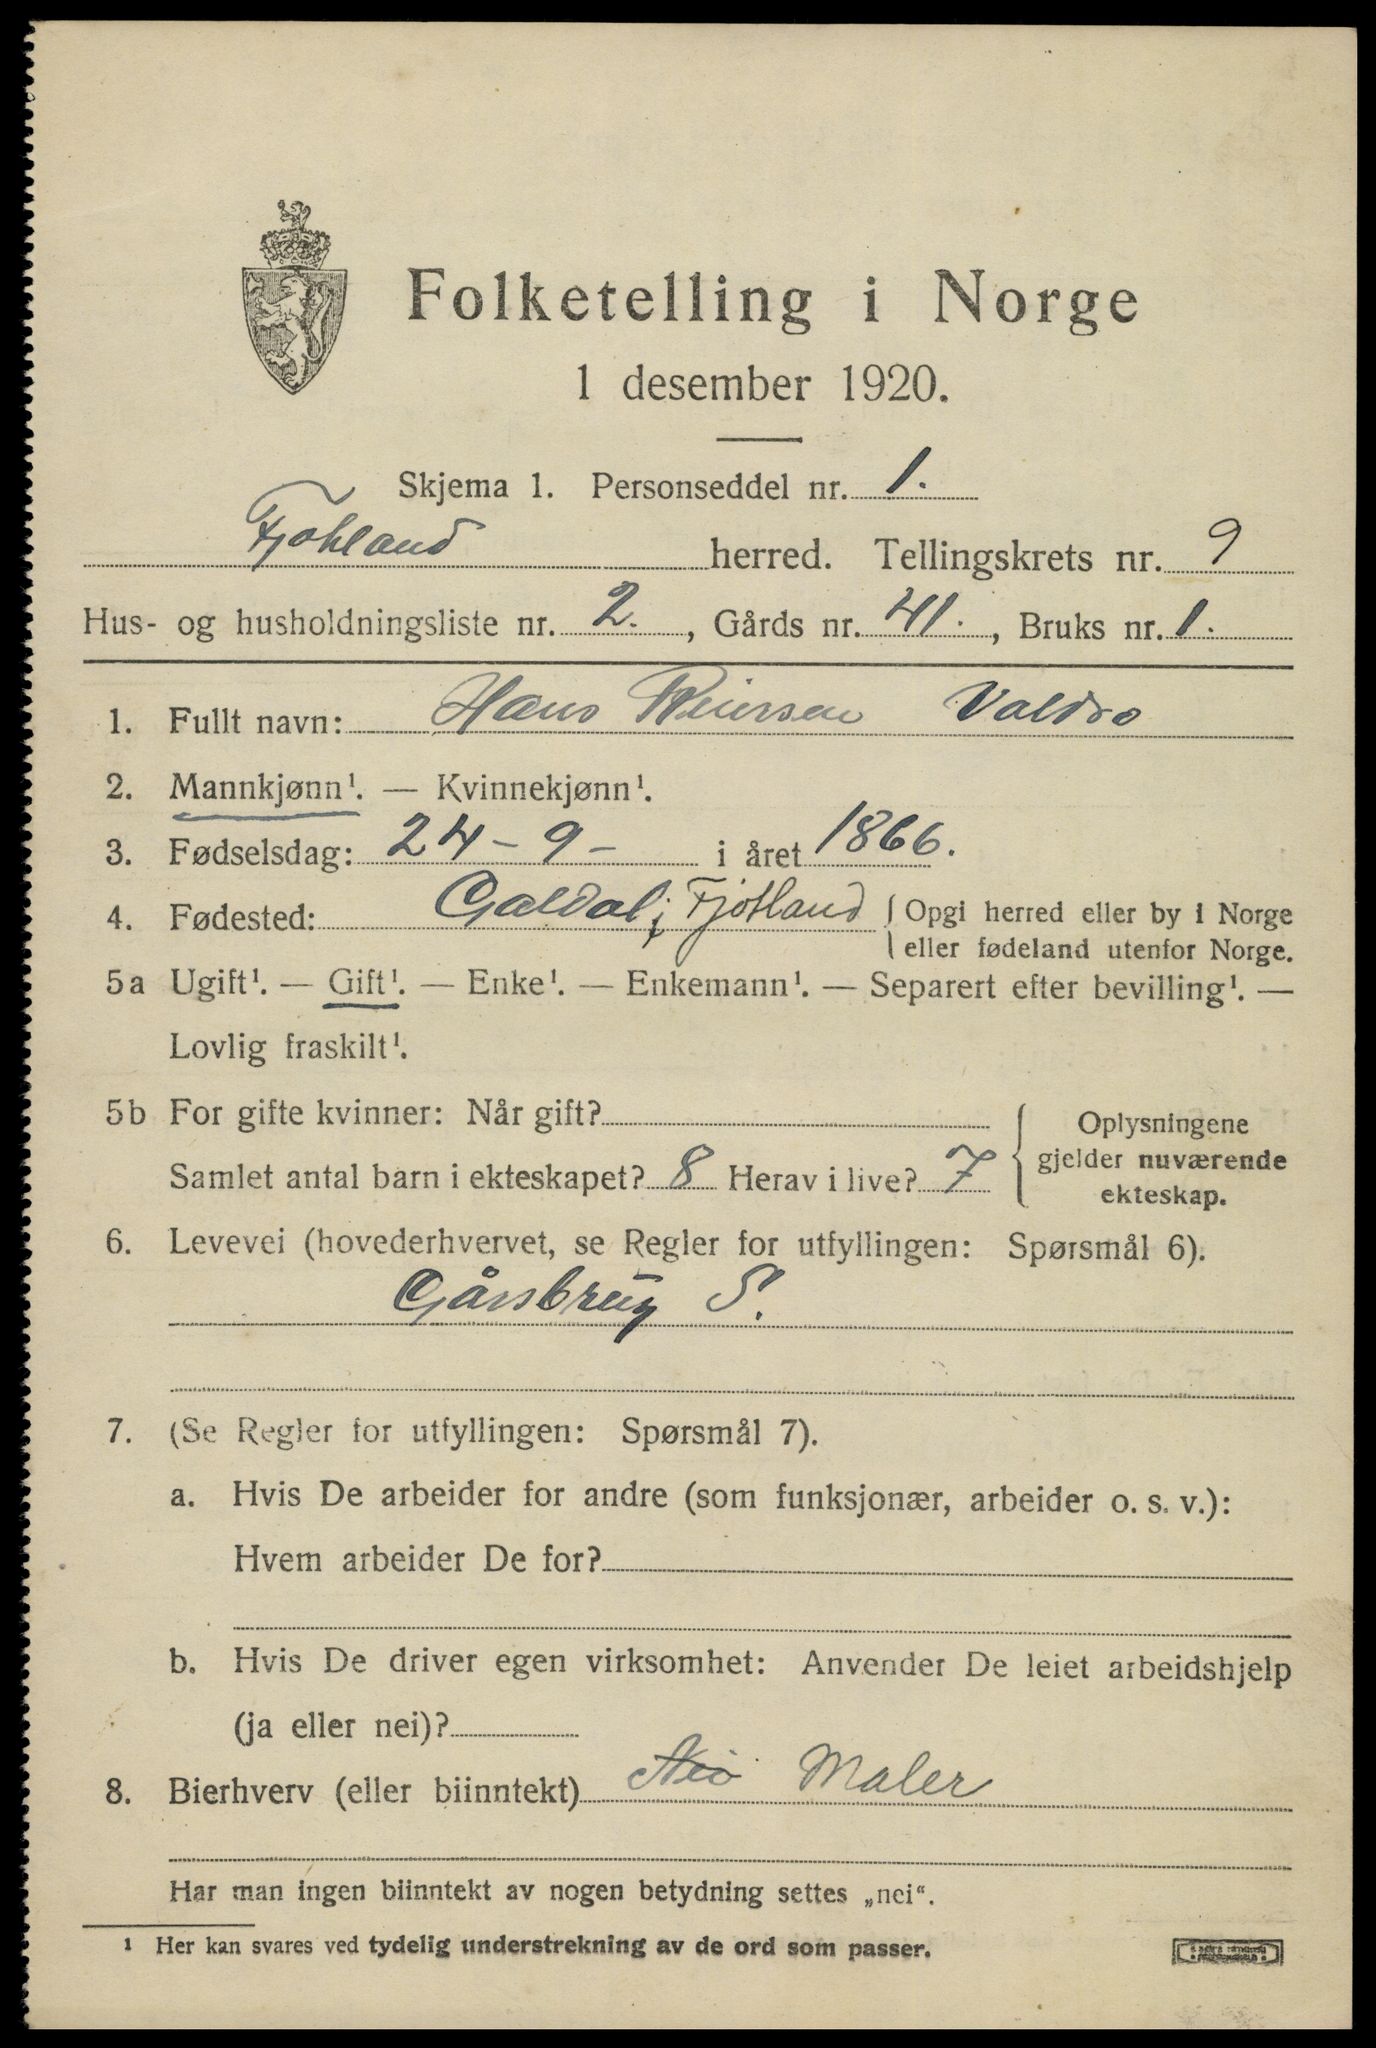 Folketelling i Norge
1 desember 1920.
Skjema 1. Personseddel nr. 1.
Fjotland herred. Tellingskrets nr. 9
Hus- og husholdningsliste nr. 2. , Gårds nr. 41. , Bruks nr. 1.
1. Fullt navn: Hans Reiersen Valdro
2. Mannkjønn¹. — Kvinnekjønn¹.
3. Fødselsdag: 24-9- i året 1866.
4. Fødested: Galdal i Fjotland Opgi herred eller by i Norge
eller fødeland utenfor Norge.
5a Ugift¹. — Gift¹. — Enke¹. — Enkemann¹. — Separert efter bevilling¹. —
Lovlig fraskilt¹.
5b For gifte kvinner: Når gift?
Samlet antal barn i ekteskapet? 8 Herav i live? 7
Oplysningene
gjelder nuværende
ekteskap.
6. Levevei (hovederhvervet, se Regler for utfyllingen: Spørsmål 6).
Gårsbrug S.
7. (Se Regler for utfyllingen: Spørsmål 7).
a. Hvis De arbeider for andre (som funksjonær, arbeider o. s. v.):
Hvem arbeider De for?
b. Hvis De driver egen virksomhet: Anvender De leiet arbeidshjelp
(ja eller nei)?
8. Bierhverv (eller biinntekt) Maler
Har man ingen biinntekt av nogen betydning settes „nei“.
¹ Her kan svares ved tydelig understrekning av de ord som passer.